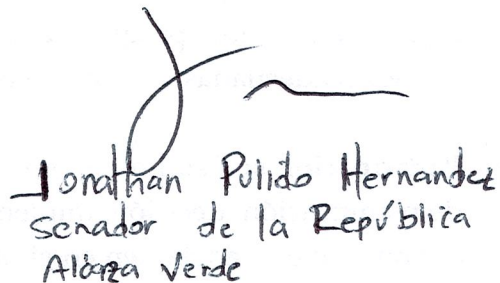 Jonathan Pulido Hernandez
Senador de la República
Alianza Verde